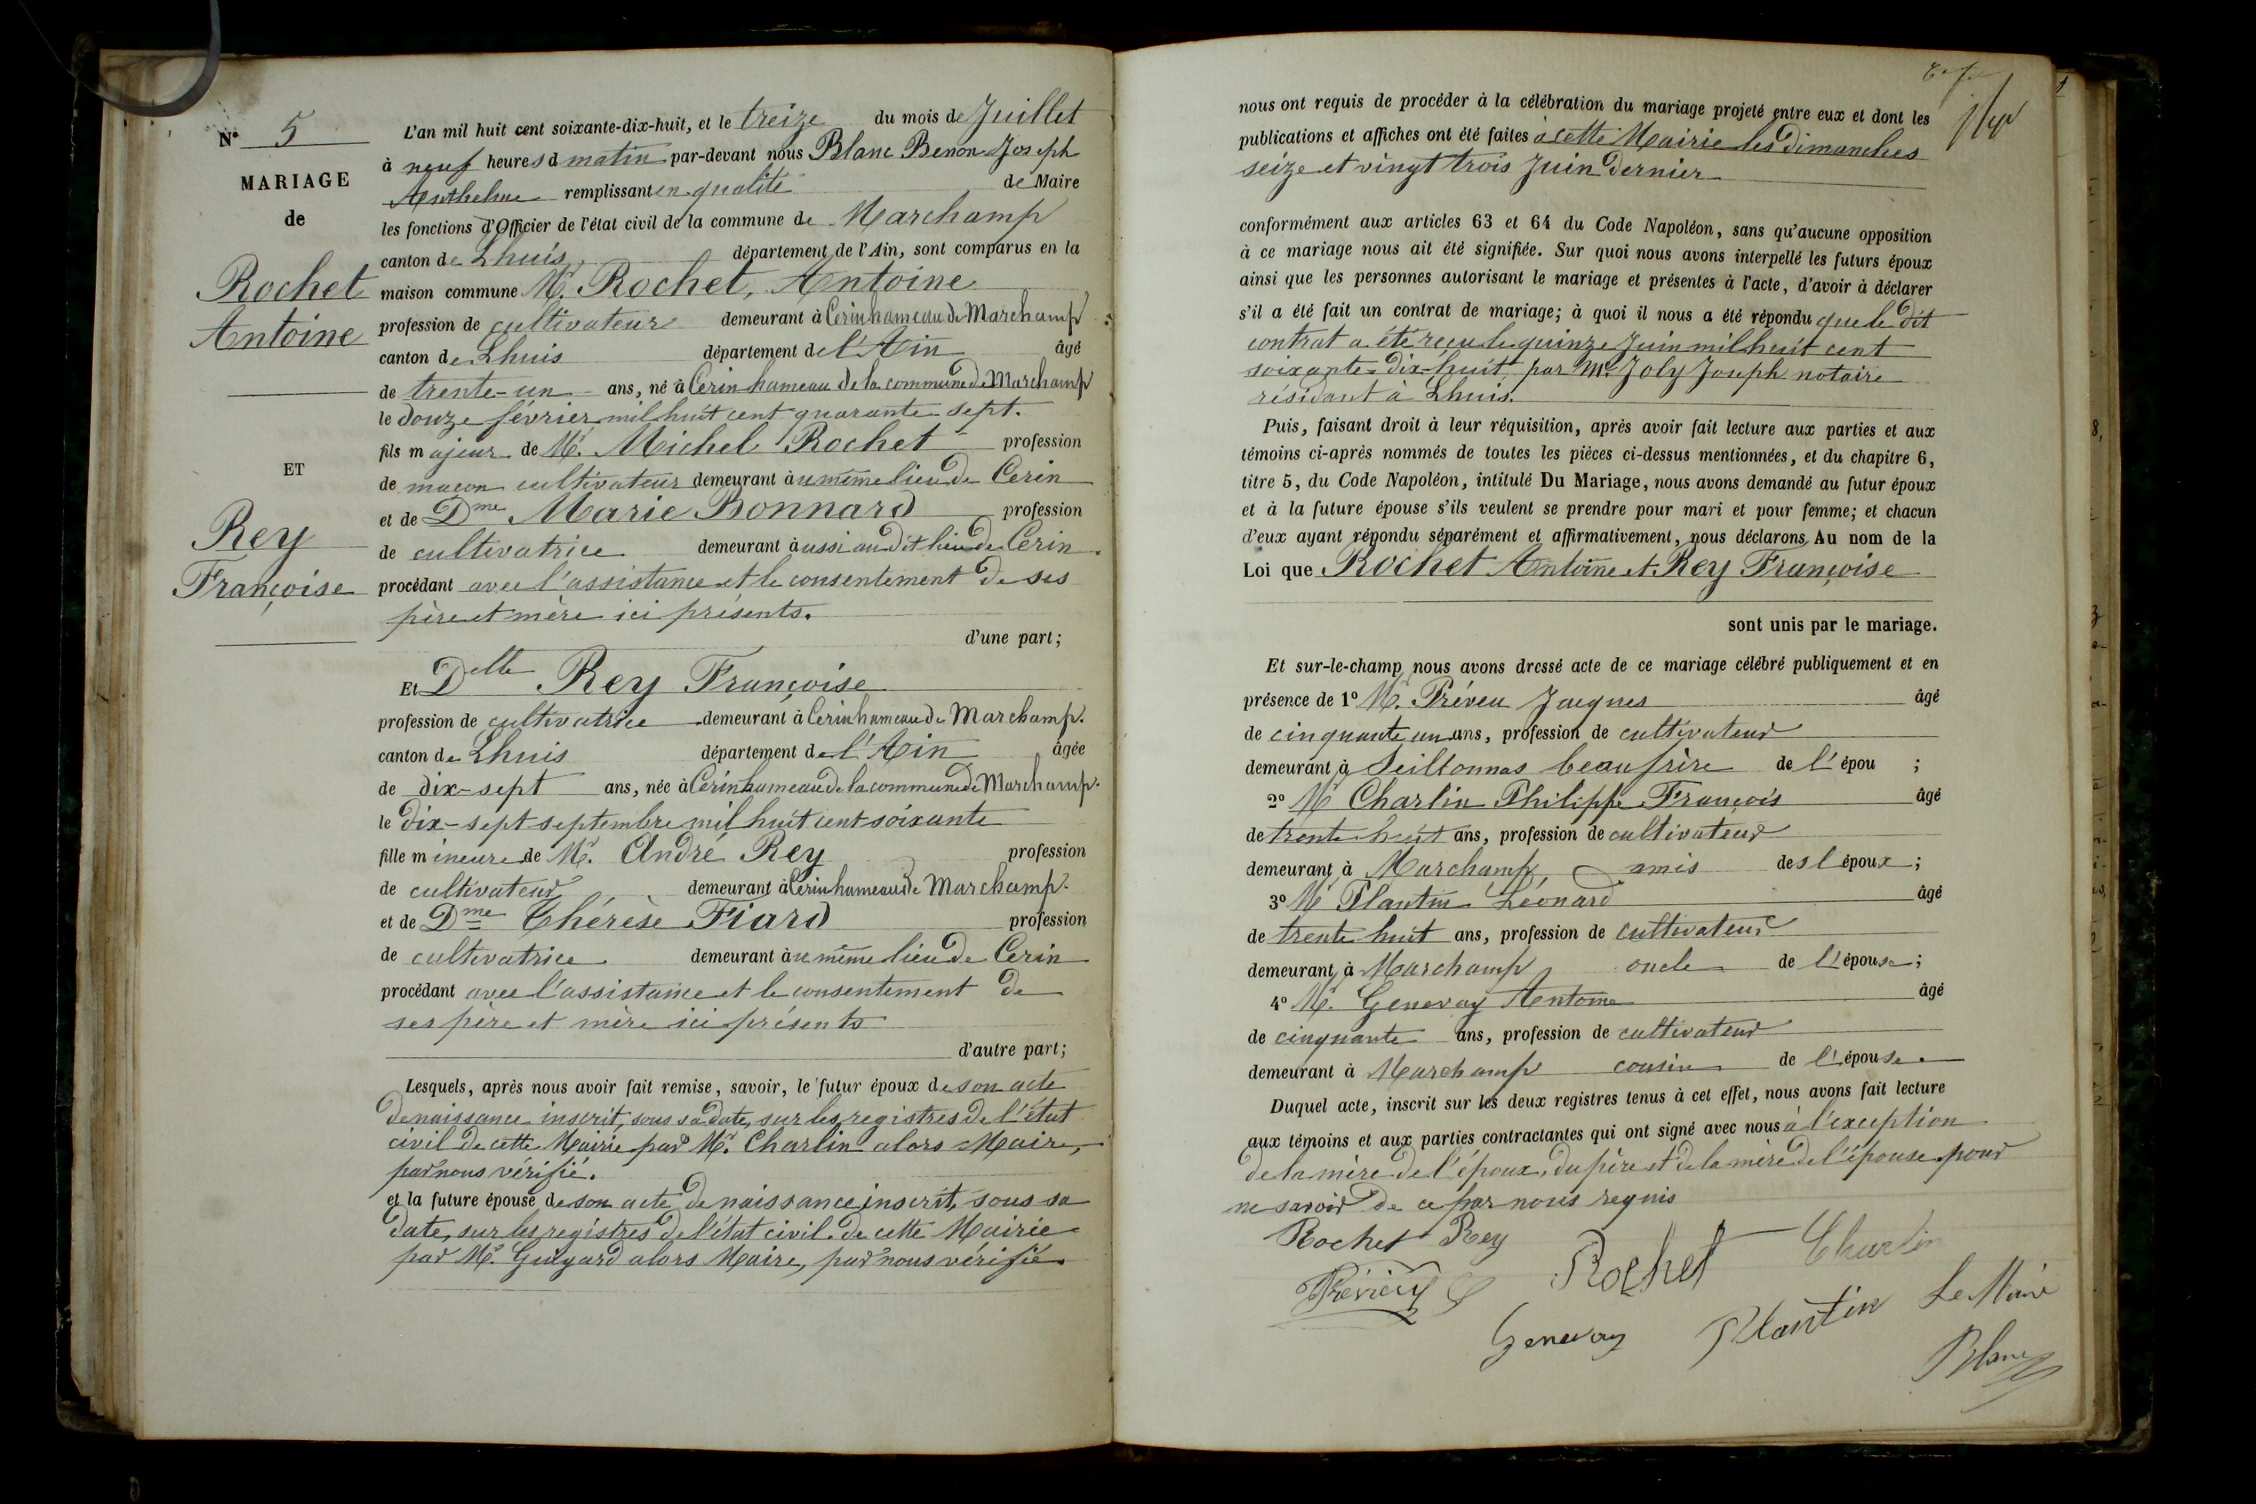 N° 5
MARIAGE
de
Rochet
Antoine
ET
Rey
Françoise
L'an mil huit cent soixante-dix-huit, et le treize du mois de Juillet
à neuf heures d matin par-devant nous Blanc Benon Joseph
Anthelme remplissant en qualité de Maire
les fonctions d'Officier de l'état civil de la commune de Marchamp
canton de Lhuis, département de l'Ain, sont comparus en la
maison commune Mr. Rochet, Antoine
profession de cultivateur demeurant à Cerin hameau de Marchamp
canton de Lhuis département de l'Ain âgé
de trente-un ans, né à Cerin hameau de la commune de Marchamp
le douze février mil huit cent quarante sept.
fils majeur de Mr. Michel Rochet profession
de maçon cultivateur demeurant à u même lieu de Cerin
et de Dme Marie Bonnard profession
de cultivatrice demeurant à ussi au dit lieu de Cerin.
procédant avec l'assistance et le consentement de ses
père et mère ici présents.
d'une part;
Et Delle Rey Françoise
profession de cultivatrice demeurant à Cerin hameau de Marchamp.
canton de Lhuis département de l'Ain âgée
de dix-sept ans, née à Cerin hameau de la commune de Marchamp.
le dix-sept septembre mil huit cent soixante
fille mineure de Mr. André Rey profession
de cultivateur demeurant à Cerin hameau de Marchamp.
et de Dme Thérèse Fiard profession
de cultivatrice demeurant à u même lieu de Cerin
procédant avec l'assistance et le consentement de
ses père et mère ici présents
d'autre part;
Lesquels, après nous avoir fait remise, savoir, le futur époux de son acte
de naissance inscrit, sous sa date, sur les registres de l'état
civil de cette Mairie par Mr. Charlin alors Maire,
par nous vérifié.
et la future épouse de son acte de naissance inscrit, sous sa
date, sur les registres de l'état civil de cette Mairie
par Mr. Guigard alors Maire, par nous vérifié.
nous ont requis de procéder à la célébration du mariage projeté entre eux et dont les
publications et affiches ont été faites à cette Mairie les dimanches
seize et vingt trois Juin dernier
conformément aux articles 63 et 64 du Code Napoléon, sans qu'aucune opposition
à ce mariage nous ait été signifiée. Sur quoi nous avons interpellé les futurs époux
ainsi que les personnes autorisant le mariage et présentes à l'acte, d'avoir à déclarer
s'il a été fait un contrat de mariage; à quoi il nous a été répondu que le dit
contrat a été reçu le quinze Juin mil huit cent
soixante-dix-huit par Me Joly Joseph notaire
résidant à Lhuis.
Puis, faisant droit à leur réquisition, après avoir fait lecture aux parties et aux
témoins ci-après nommés de toutes les pièces ci-dessus mentionnées, et du chapitre 6,
titre 5, du Code Napoléon, intitulé Du Mariage, nous avons demandé au futur époux
et à la future épouse s'ils veulent se prendre pour mari et pour femme; et chacun
d'eux ayant répondu séparément et affirmativement, nous déclarons Au nom de la
Loi que Rochet Antoine et Rey Françoise
sont unis par le mariage.
Et sur-le-champ nous avons dressé acte de ce mariage célébré publiquement et en
présence de 1° Mr. Préveu Jacques âgé
de cinquante un ans, profession de cultivateur
demeurant à Seillonnas beaufrère de l' épou ;
2° Mr Charlin Philippe François âgé
de trente huit ans, profession de cultivateur
demeurant à Marchamp, amis des l époux;
3° Mr Plantin Léonard âgé
de trente huit ans, profession de cultivateur
demeurant à Marchamp oncle de l'épouse;
4° Mr. Genevay Antoine âgé
de cinquante ans, profession de cultivateur
demeurant à Marchamp cousin de l'épouse.
Duquel acte, inscrit sur les deux registres tenus à cet effet, nous avons fait lecture
aux témoins et aux parties contractantes qui ont signé avec nous à l'exception
de la mère de l'époux, du père et de la mère de l'épouse pour
ne savoir de ce par nous requis
Rochet Rey Rochet Charlin
Genevay Plantin Le Maire
Blanc